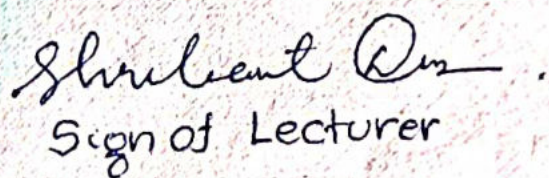 Shrikant Das .
Sign of Lecturer